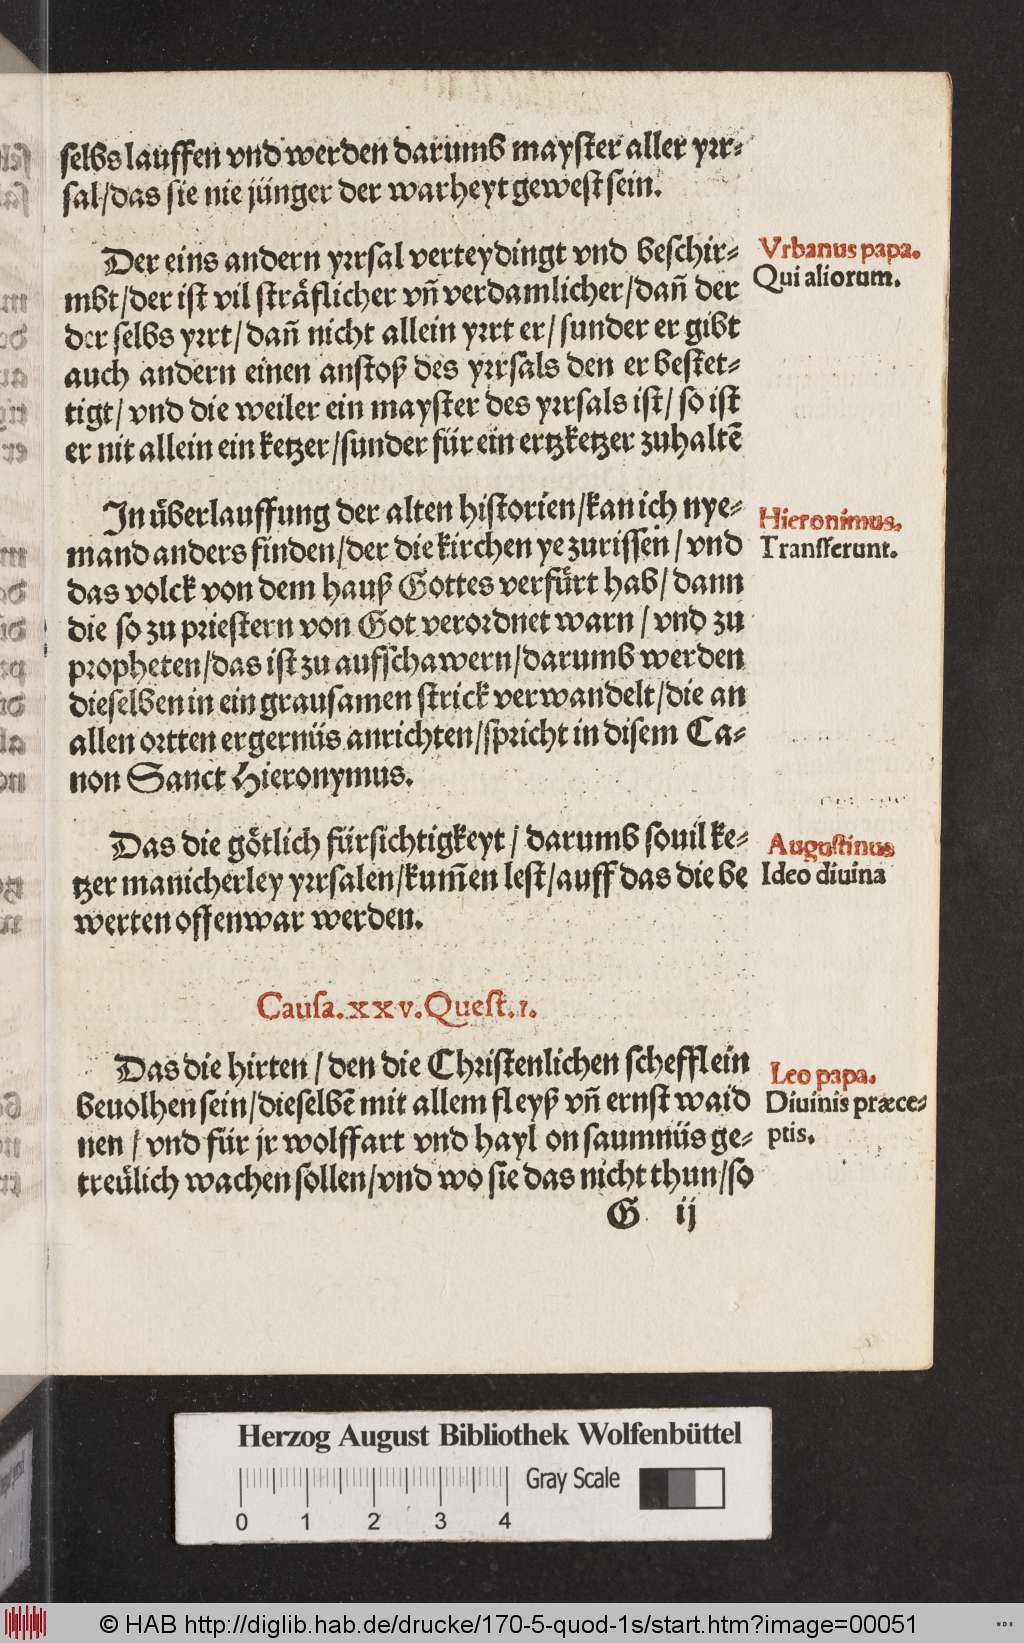 selbs lauffen vnd werden darumb mayster aller yrr⸗
sal/das sie nie jünger der warheyt gewest sein.
Der eins andern yrrsal verteydingt vnd beschir⸗
mbt/der ist vil sträflicher vn̄ verdamlicher/dan̄ der
der selbs yrrt/dan̄ nicht allein yrrt er/sunder er gibt
auch andern einen anstoß des yrrsals den er bestet⸗
tigt/vnd die weiler ein mayster des yrrsals ist/so ist
er nit allein ein ketzer/sunder für ein ertzketzer zuhaltē
Vrbanus papa.
Qui aliorum.
In überlauffung der alten historien/kan ich nye⸗
mand anders finden/der die kirchen ye zurissen/vnd
das volck von dem hauß Gottes verfürt hab/dann
die so zu priestern von Got verordnet warn/vnd zu
propheten/das ist zu aufschawern/darumb werden
dieselben in ein grausamen strick verwandelt/die an
allen ortten ergernüs anrichten/spricht in disem Ca⸗
non Sanct Hieronymus.
Hieronimus.
Transferunt.
Das die götlich fürsichtigkeyt/darumb souil ke⸗
tzer manicherley yrrsalen/kum̄en lest/auff das die be
werten offenwar werden.
Augustinus
Ideo diuina
Causa.xxv.Quest.1.
Das die hirten/den die Christenlichen schefflein
beuolhen sein/dieselbē mit allem fleyß vn̄ ernst waid
nen/vnd für jr wolffart vnd hayl on saumnüs ge⸗
treülich wachen sollen/vnd wo sie das nicht thun/so
Leo papa.
Diuinis præce⸗
ptis.
G ij
Herzog August Bibliothek Wolfenbüttel
Gray Scale
0 1 2 3 4
© HAB http://diglib.hab.de/drucke/170-5-quod-1s/start.htm?image=00051